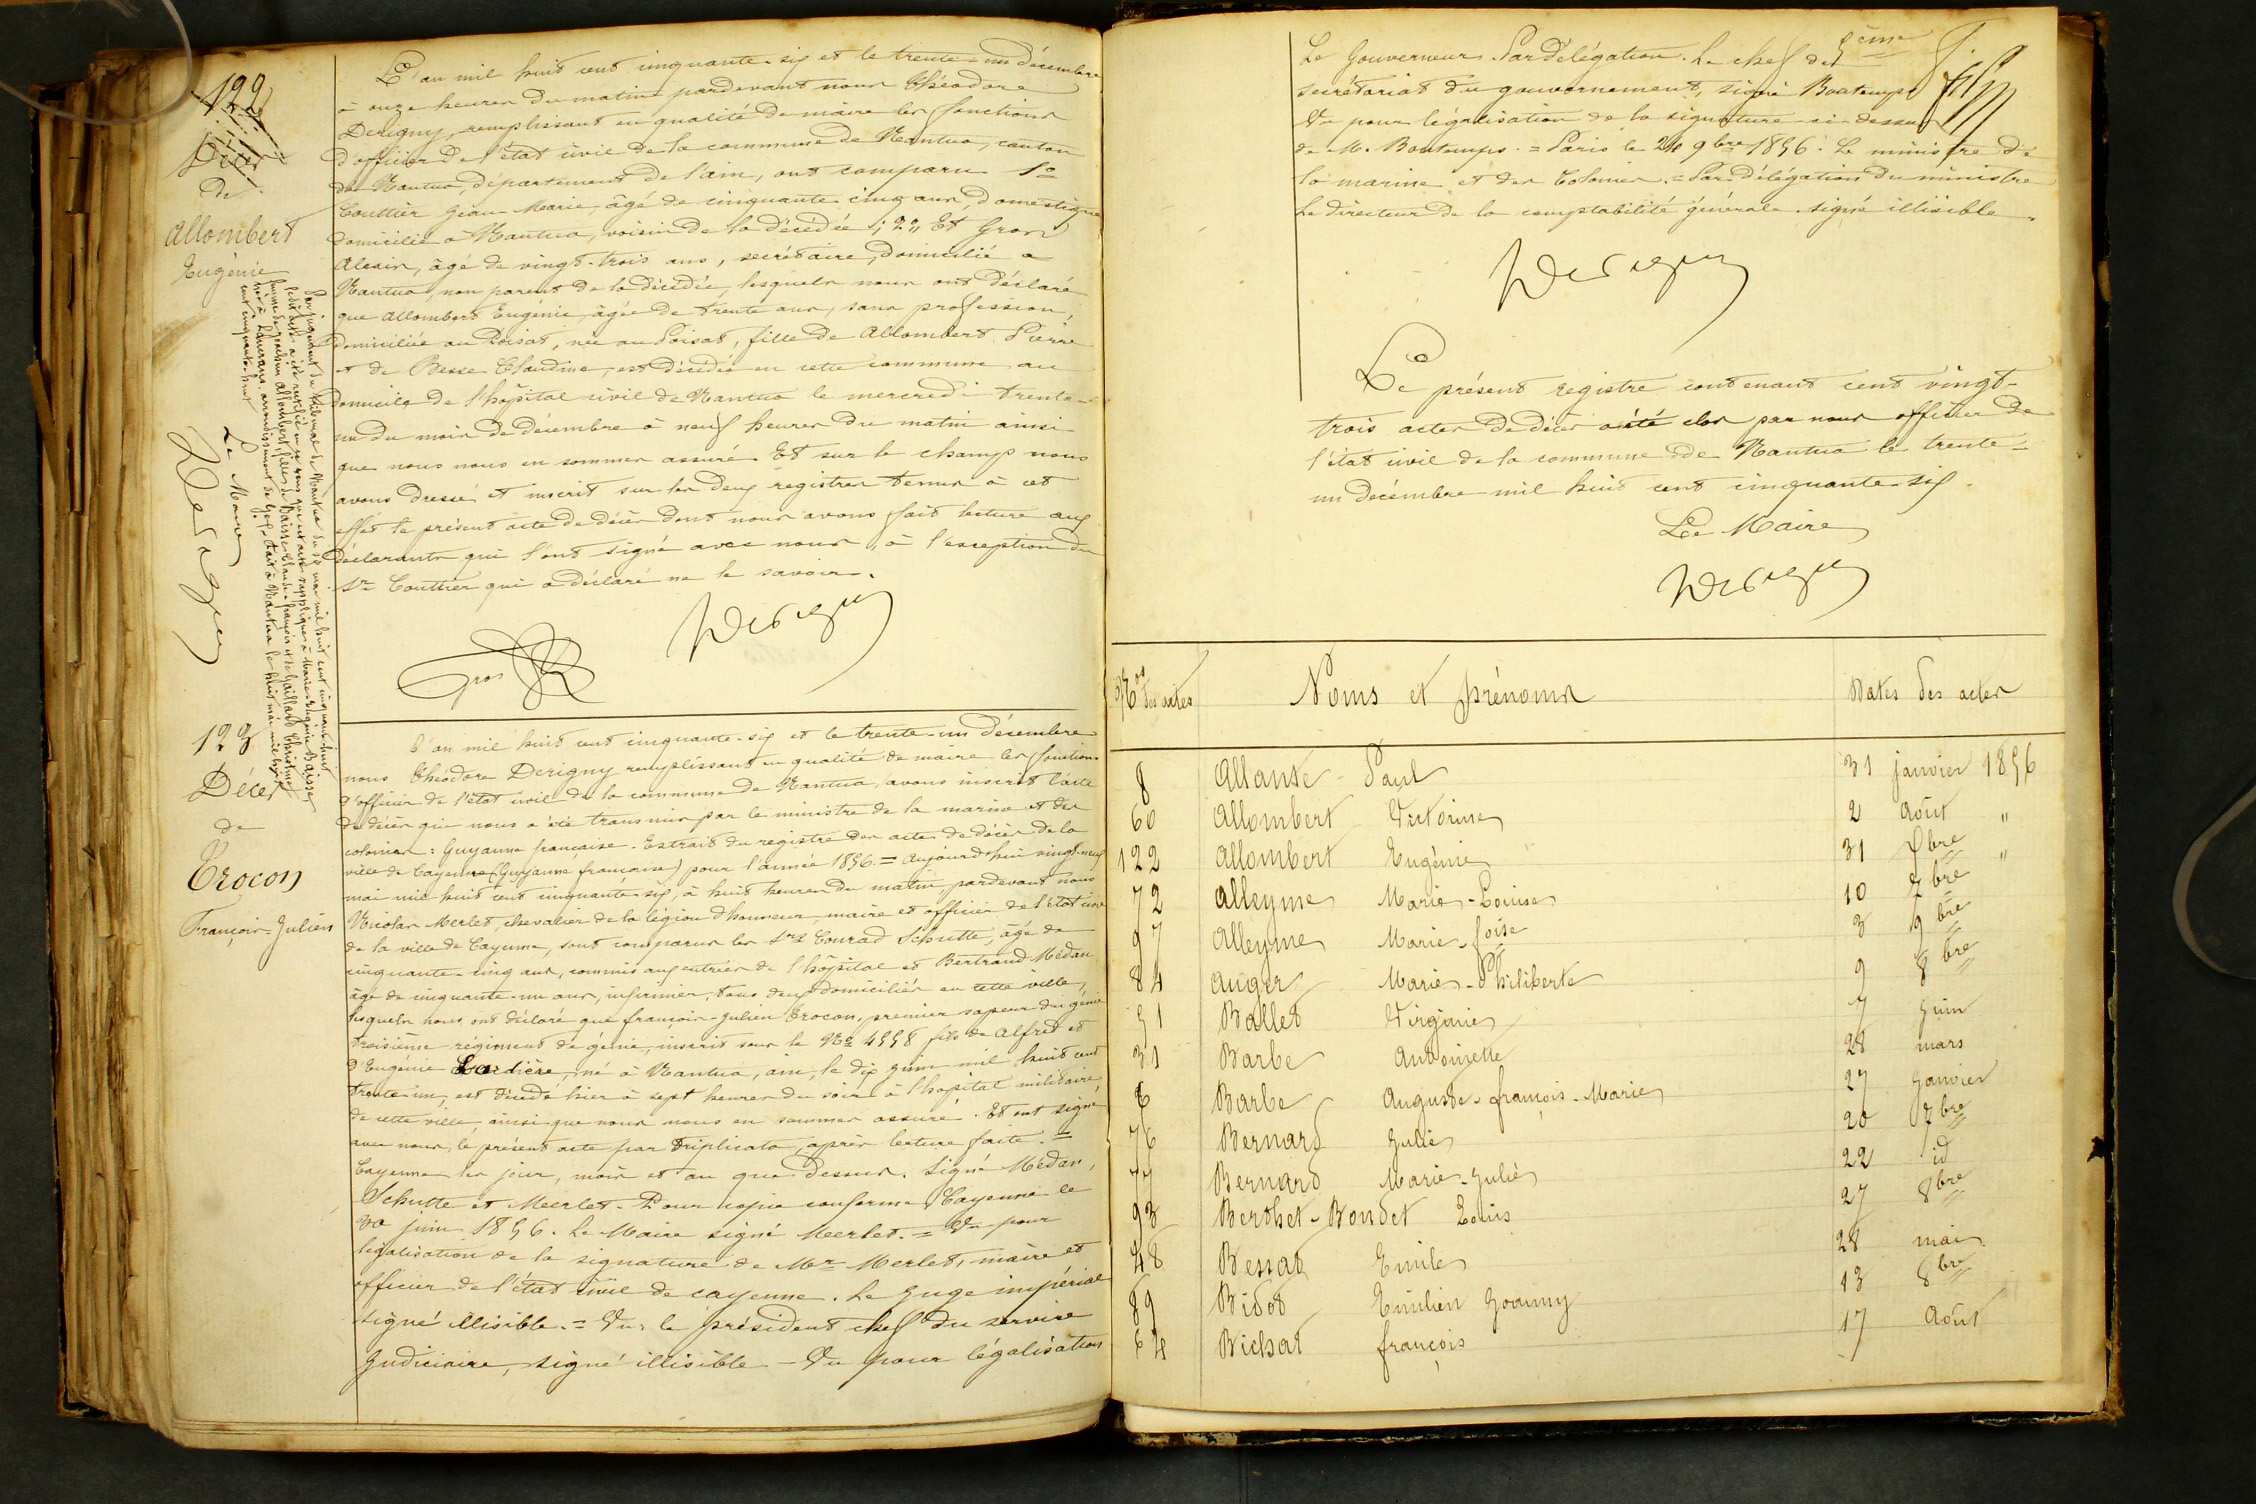 122
Décès
de
Allombert
Eugénie
L'an mil huit cent cinquante-six et le trente-un décembre
à onze heures du matin pardevant nous Théodore
Derigny, remplissant en qualité de maire les fonctions
d'officier de l'état civil de la commune de Nantua, canton
de Nantua, département de l'ain, ont comparu 1º
Couttier Jean-Marie, âgé de cinquante cinq ans, domestique
domicilié à Nantua, voisin de la décédée ; 2" Et Gros
Alexis, âgé de vingt-trois ans, secrétaire, domicilié à
Nantua, non parent de la décédée, lesquels nous ont déclaré
que Allombert Eugénie, âgée de trente ans, sans profession,
domiciliée au Poisat, née au Poisat, fille de Allombert Pierre
et de Besse Claudine, est décédée en cette commune au
domicile de l'hôpital civil de Nantua le mercredi trente-
un du mois de décembre à neuf heures du matin ainsi
que nous nous en sommes assuré. Et sur le champ nous
avons dressé et inscrit sur les deux registres tenus à cet
effet le présent acte de décès dont nous avons fait lecture aux
déclarants qui l'ont signé avec nous, à l'exception du
Sr Couttier qui a déclaré ne le savoir.
Gros
Derigny
Par jugement du tribunal de Nantua du mai mil huit cent cinquante-huit
le dit acte a été rectifié en ce sens que cet acte s'applique à Marie-Eugénie Baisse,
femme de Joachim Allombert, fille de Baisse Claude-françois et de Gaillard Christine,
née à arrondissement de Gex. fait à Nantua le huit mai mil huit
cent cinquante-huit
Le Maire
Derigny
123
Décès
de
Crocon
François-Julien
L'an mil huit cent cinquante-six et le trente-un décembre
nous Théodore Derigny remplissant en qualité de maire les fonctions
d'officier de l'état civil de la commune de Nantua, avons inscrit l'acte
de décès qui nous a été transmis par le ministre de la marine et des
colonies : Guyanne française. Extrait du registre des actes de décès de la
ville de Cayenne (Guyanne française) pour l'année 1856. = Aujourd'hui vingt-neuf
mai mil huit cent cinquante-six, à huit heures du matin, pardevant nous
Nicolas Merlet, chevalier de la légion d'honneur, maire et officier de l'état civil
de la ville de Cayenne, sont comparus les Srs Conrad Schutte, âgé de
cinquante-cinq ans, commis aux entrées de l'hôpital et Bertrand Médan
âgé de cinquante-un ans, infirmier, tous deux domiciliés en cette ville,
lesquels nous ont déclaré que françois-Julien Crocon, premier sapeur du génie
troisième régiment de génie, inscrit sous le Nº 4558 fils de Alfred et
d'Eugénie Lardière, né à Nantua, ain, le dix juin mil huit cent
trente-un, est décédé hier à sept heures du soir à l'hôpital militaire
de cette ville, ainsi que nous nous en sommes assuré. Et ont signé
avec nous le présent acte par triplicata, après lecture faite. =
Cayenne les jour, mois et an que dessus. Signé Médan,
Schutte et Meerlet. Pour copie conforme Cayenne le
30 juin 1856. Le Maire signé Meerlet. = Vu pour
légalisation de la signature de Mr Merlet, maire et
officier de l'état civil de cayenne. Le Juge impérial
signé illisible. = Vu : le président chef du service
Judiciaire, signé illisible - Vu pour légalisation
Le Gouverneur. Par délégation. Le chef du
secrétariat du gouvernement, signé Bontemps
Vu pour légalisation de la signature ci-dessus
de M. Bontemps. = Paris le 24 9bre 1856. Le ministre de
la marine et des Colonies. = Par délégation du ministre
Le directeur de la comptabilité générale. signé illisible.
Derigny
Le présent registre contenant cent vingt-
trois actes de décès a été clos par nous officier de
l'état civil de la commune de Nantua le trente-
un décembre mil huit cent cinquante-six.
Le Maire
Derigny
Nos des actes Noms et prénoms Dates des actes
8 Allante Paul 31 janvier 1856
60 Allombert Victorine 2 Août "
122 Allombert Eugénie 31 Xbre "
72 Alleyme Marie-Louise 10 7bre
97 Alleyme Marie-foise 3 9bre
84 Auger Marie-Philiberte 9 8bre
51 Ballet Virginie 7 Juin
31 Barbe Antoinette 28 mars
6 Barbe Auguste-françois-Marie 27 Janvier
76 Bernard Julie 20 7bre
77 Bernard Marie-Julie 22 id
93 Berthet-Bondet Louis 27 8bre
48 Bessat Emile 28 mai
89 Bidot Emilien Joanny 13 8bre
64 Bichat françois 17 Août